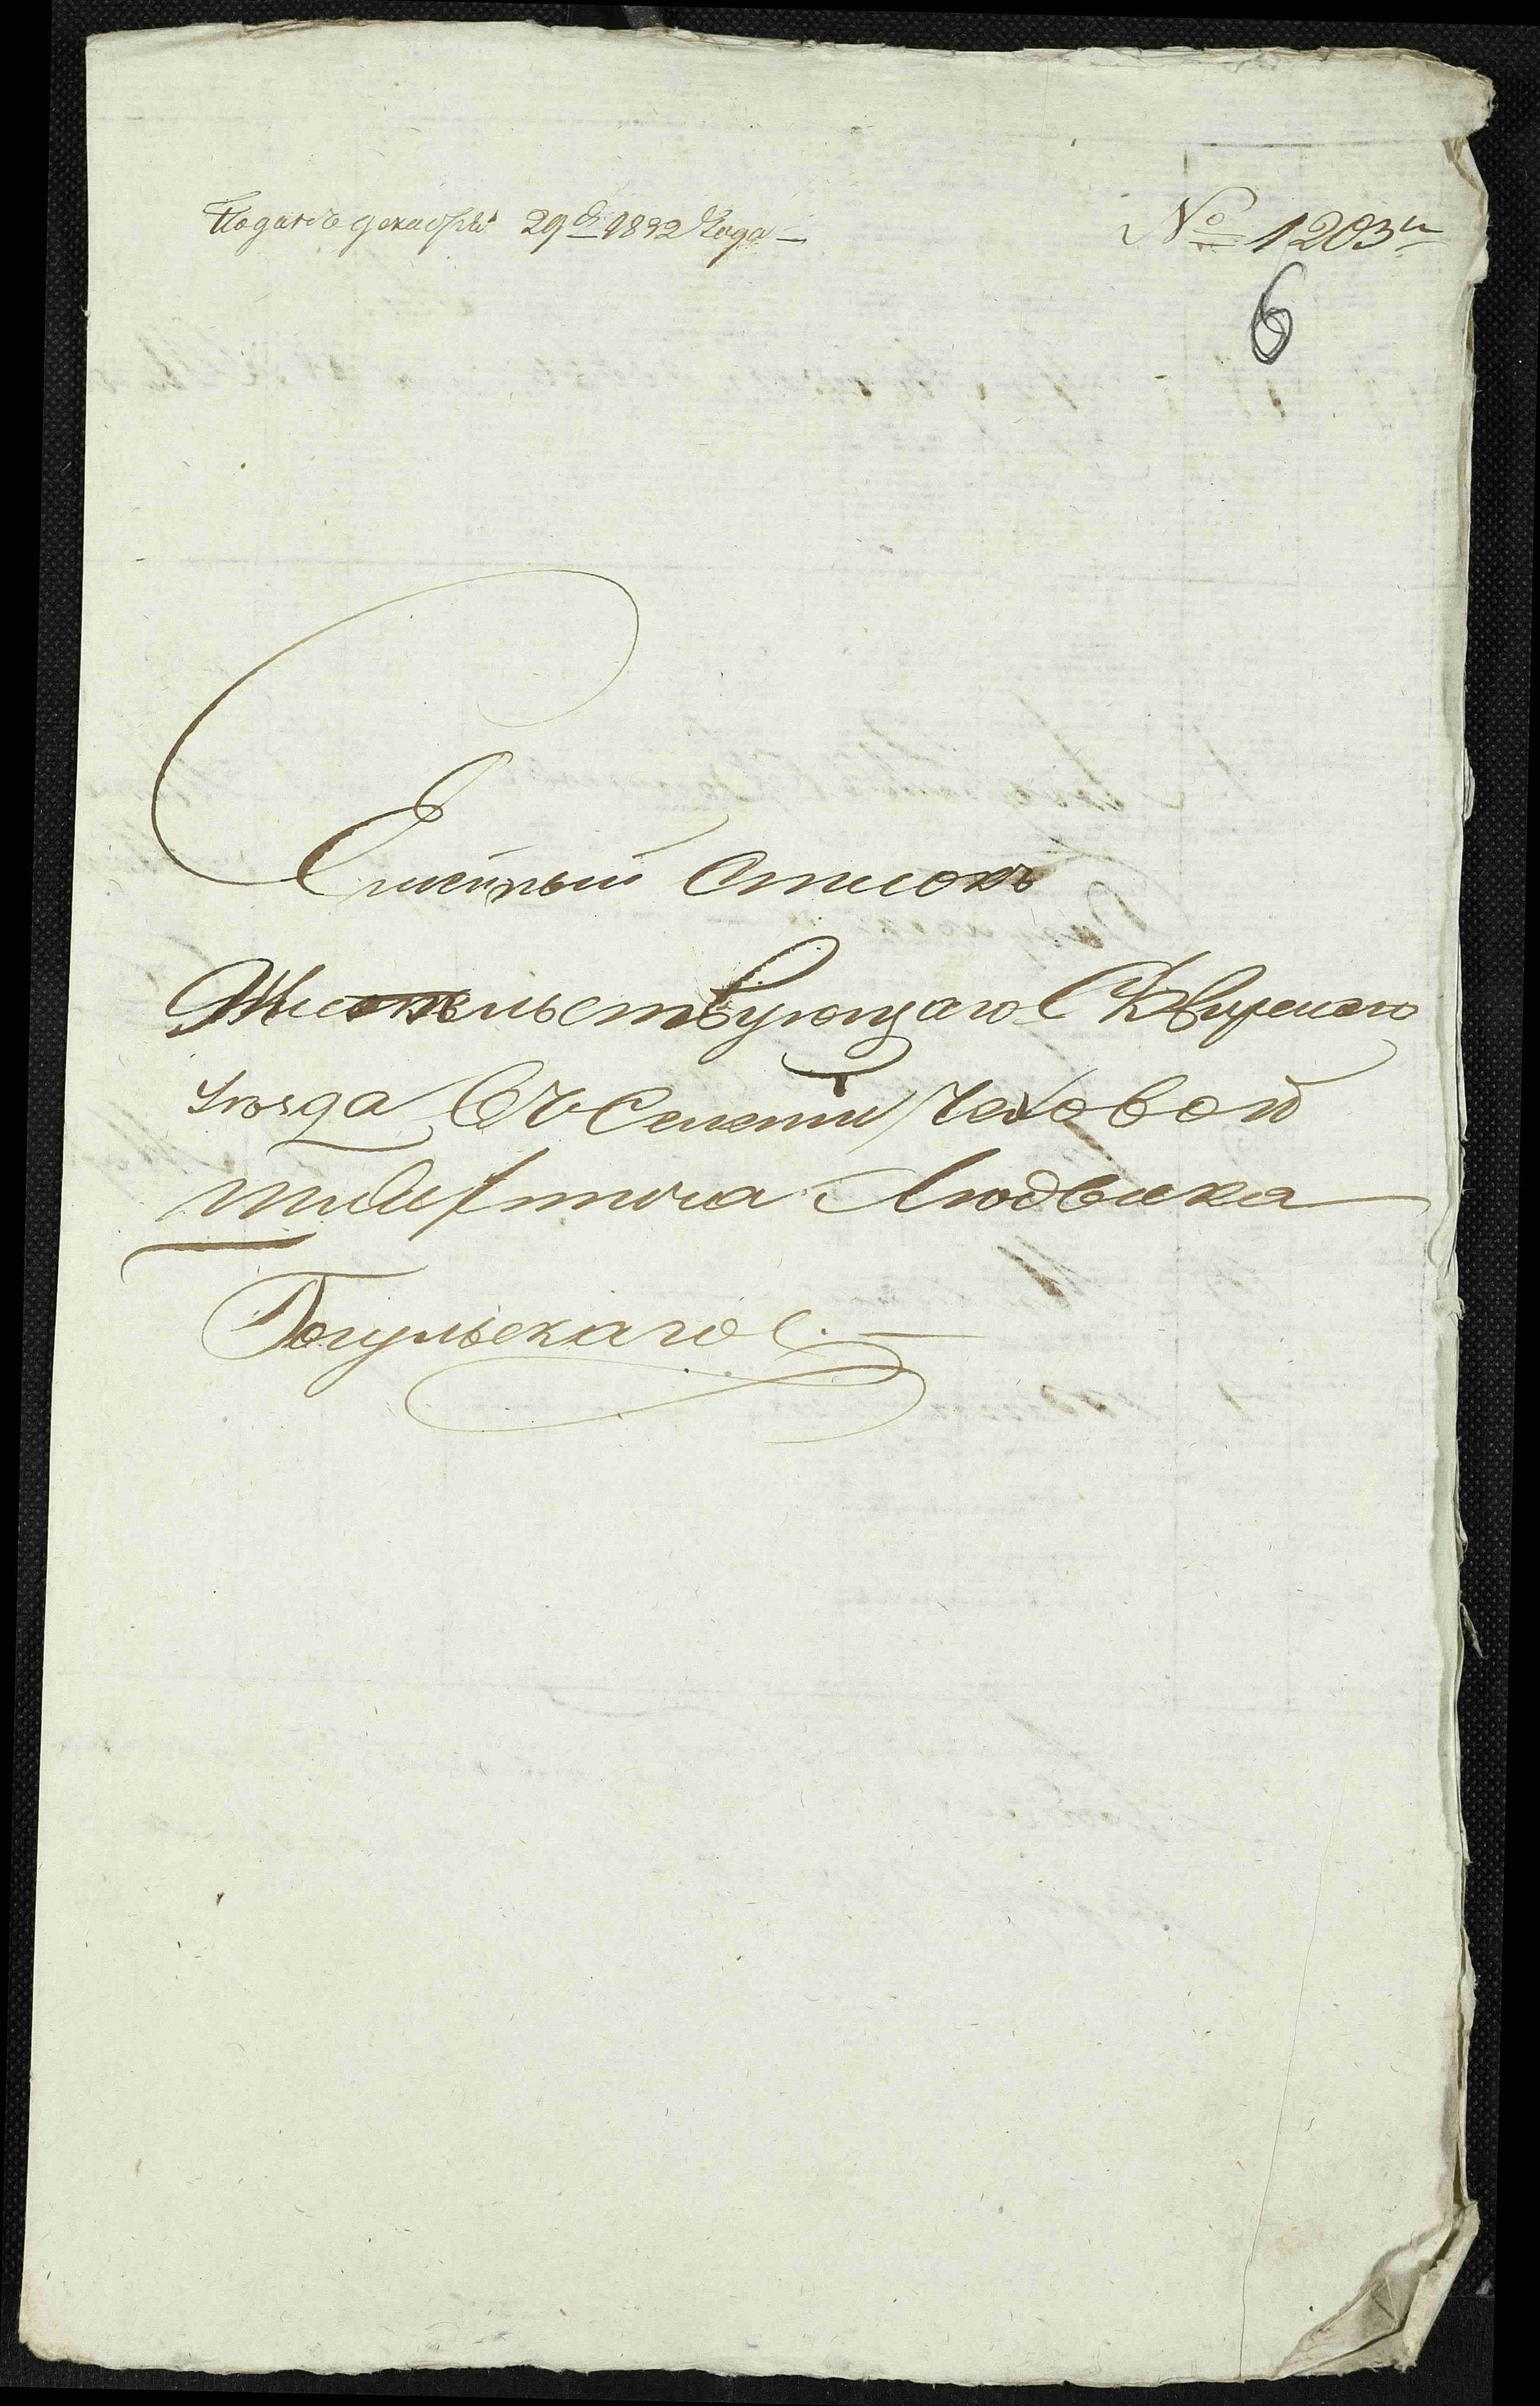 Поданъ декабря 29 1832 Года —
№ 1203
6
Имѣнный Списокъ
Жительствующаго Сквирскаго
уѣзда Въ Селеніи Чеховой
шляхтича Людвика
Рогульскаго. —